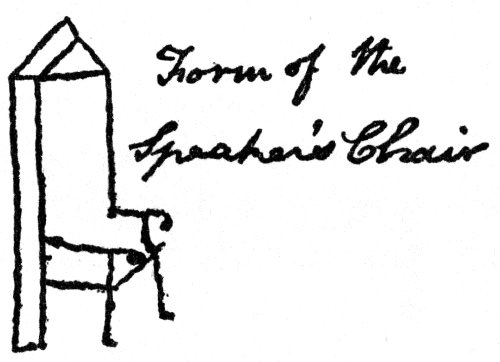 Form of the
Speaker's Chair